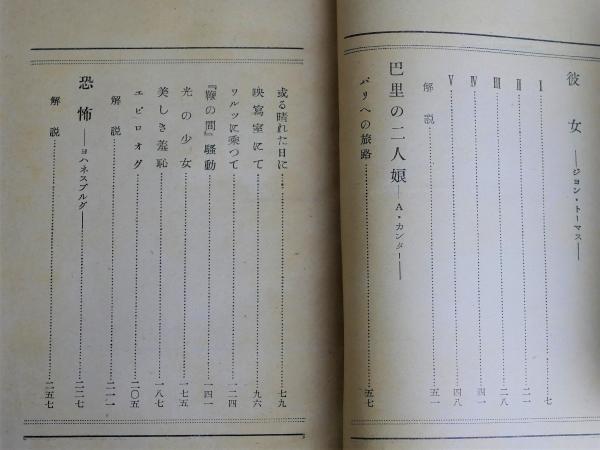 彼女――ジョン・トーマス――
I……七
II……二一
III……二八
IV……四一
V……四八
解説……五一
巴里の二人娘――A・カンター――
パリへの旅路……五七
或る晴れた日に……七九
映寫室にて……九六
ワルツに乘つて……一二四
『鞭の間』騷動……一四一
光の少女……一七五
美しき羞恥……一八七
エピロオグ……二〇五
解説……二一一
恐怖――ヨハネスブルグ――……二二七
解説……二五七